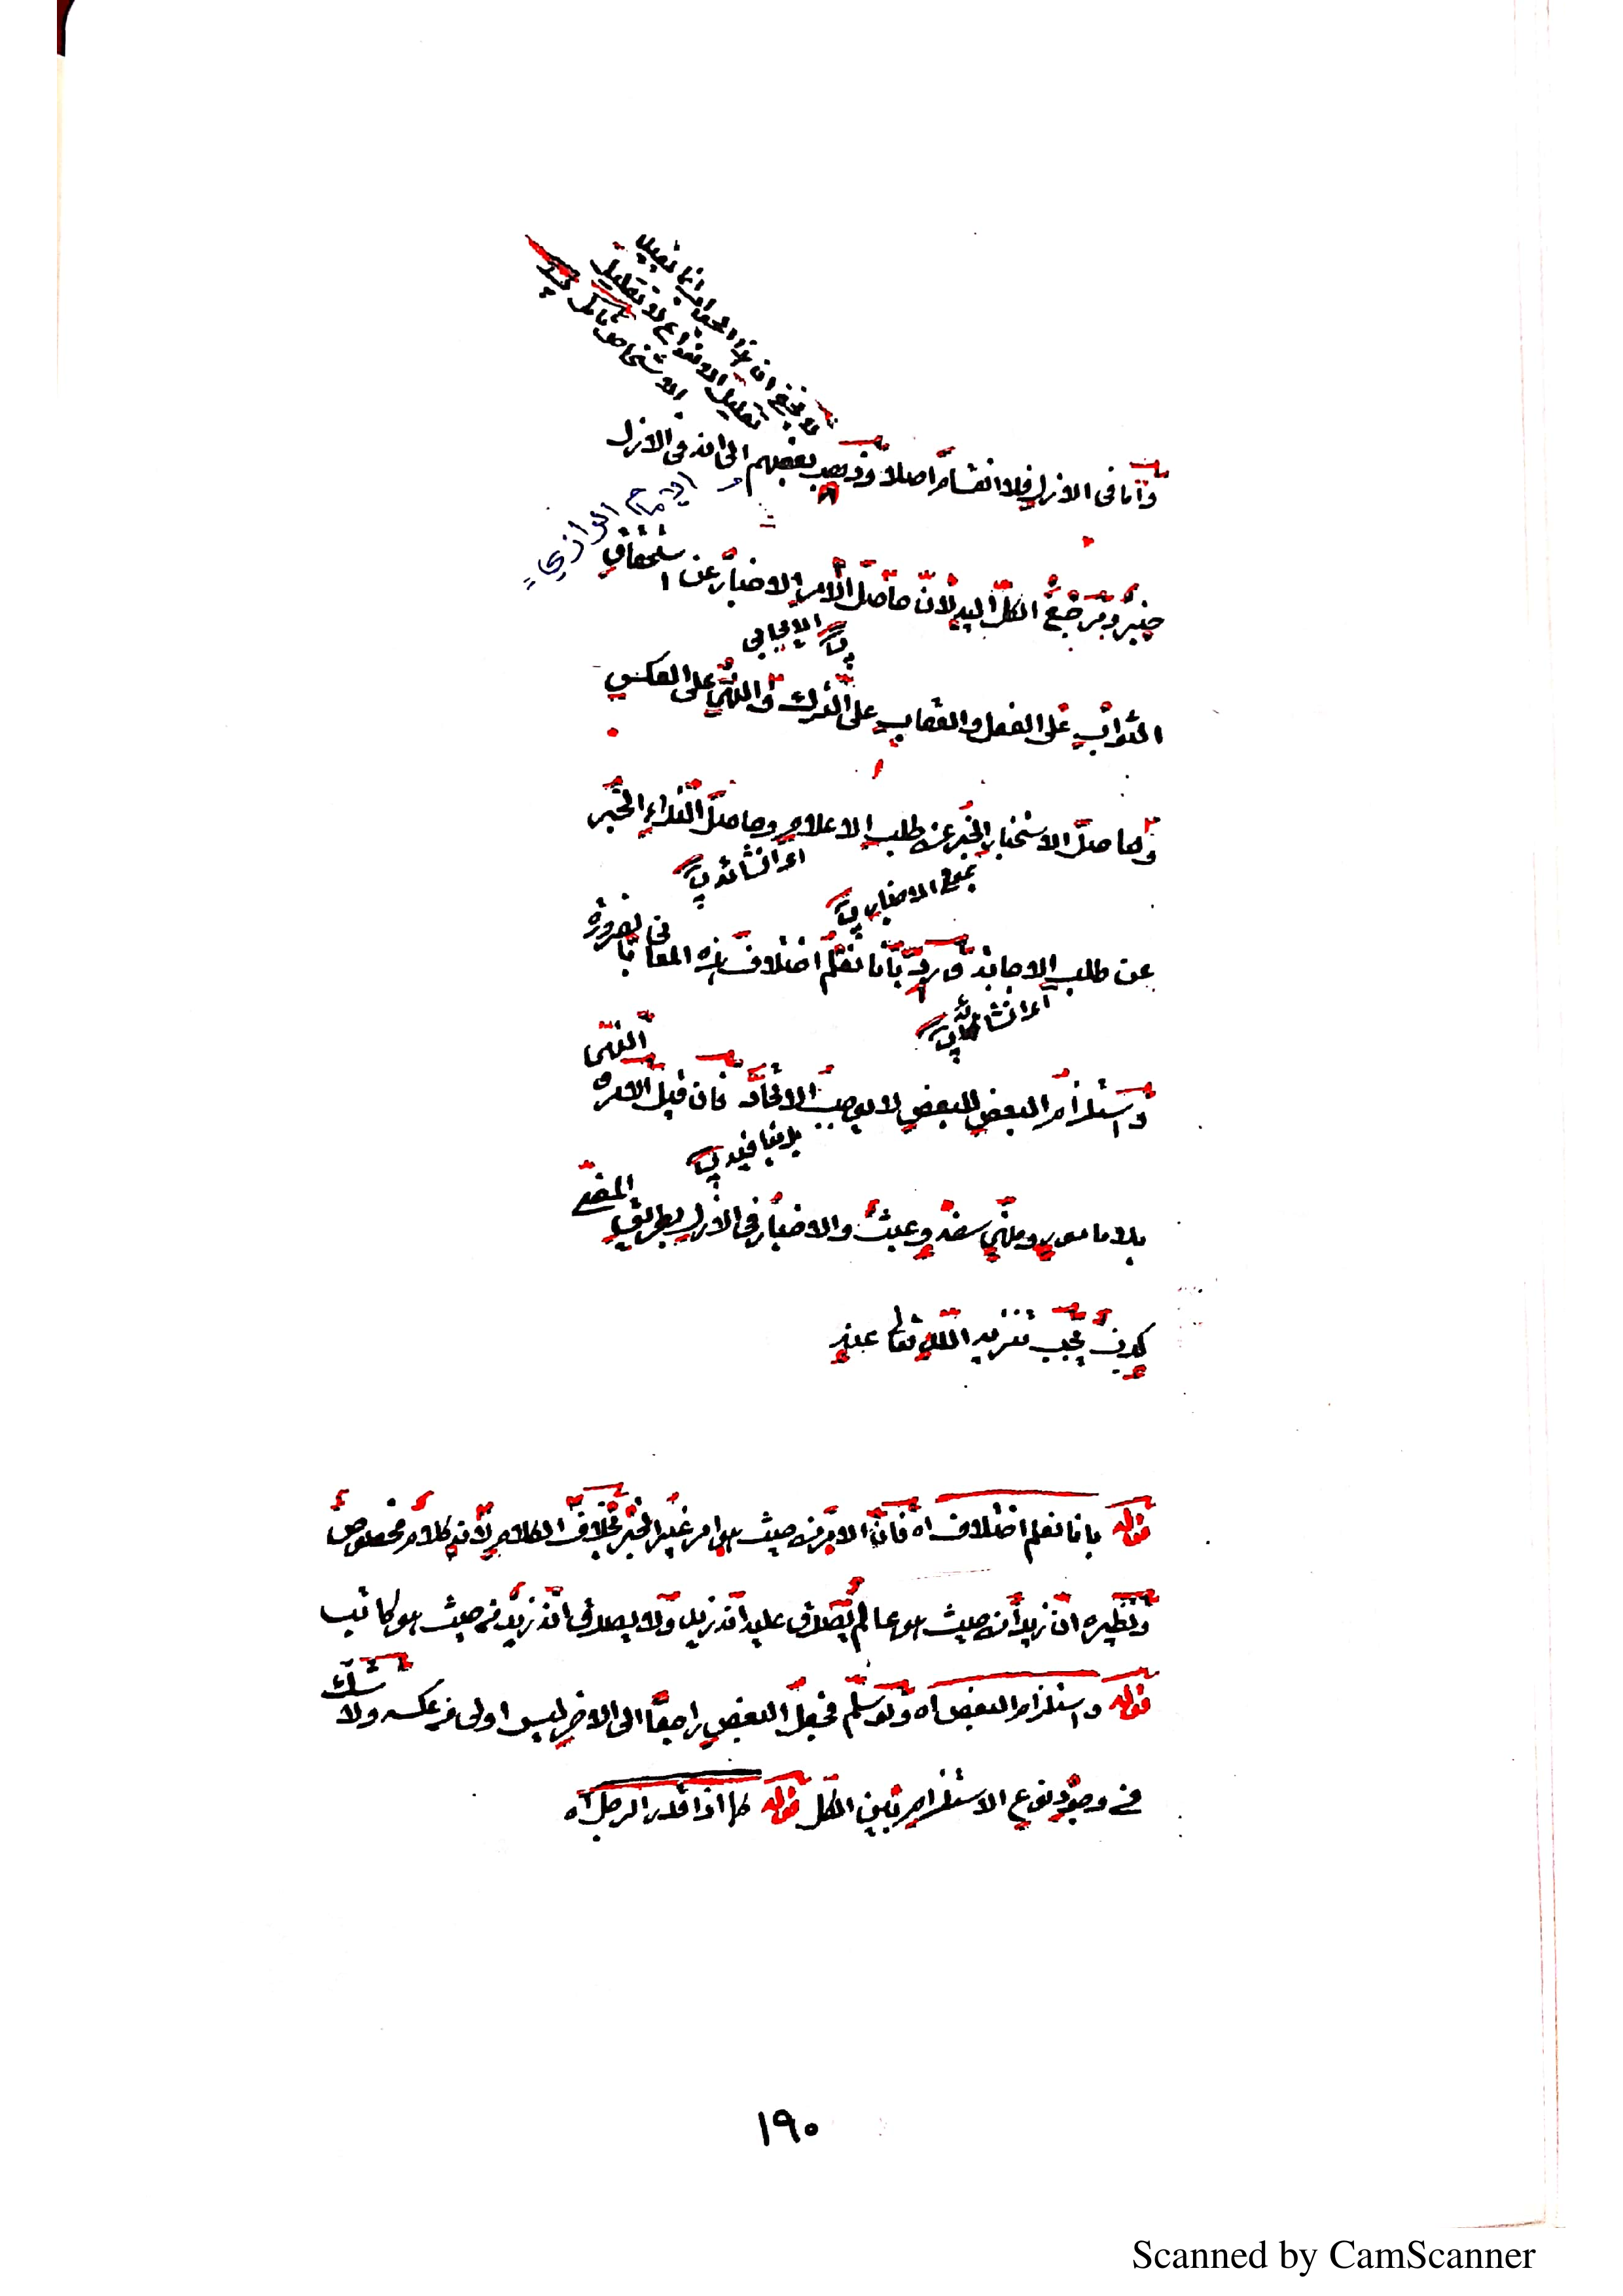 لا يخفى ان هذا الجواب انما يفيد
تعليل الانواع لا تعليل
الاشخاص تأمل
واما فى الازل فلا انقسام اصلا وذهب بعضهم الى انه فى الازل
الامام الرازي
خبر ومرجع الكل اليه لان حاصل الامر الاخبار عن استحقاق
الايجابى
الثواب على الفعل والعقاب على الترك والنهي على العكس
وحاصل الاستخبار الخبر عن طلب الاعلام وحاصل النداء الخبر
اى انشائه
بمعنى الاخبار
عن طلب الاجابة ورد بأنا نعلم اختلاف هذه المعانى بالضرورة
اى انشائه
واستلزام البعض للبعض لا يوجب الاتحاد فان قيل الامر والنهى
بلا مأمور ومنهي سفه وعبث والاخبار فى الازل بطريق المضي
كذب يجب تنزيه الله تعالى عنه
قوله بانا نعلم اختلاف اه فان الامر من حيث هو امر غير الخبر بخلاف الكلام لانه كلام مخصوص
ونظيره ان زيدا من حيث هو عالم يصدق عليه انه زيد ولا يصدق انه زيد من حيث هو كاتب
قوله واستلزام البعض اه ولو سلم فجعل البعض راجعا الى الاخر ليس اولى من عكسه ولا شك
فى وجود نوع الاستلزام بين الكل قوله كما اذا قدر الرجل اه
١٩٠
Scanned by CamScanner